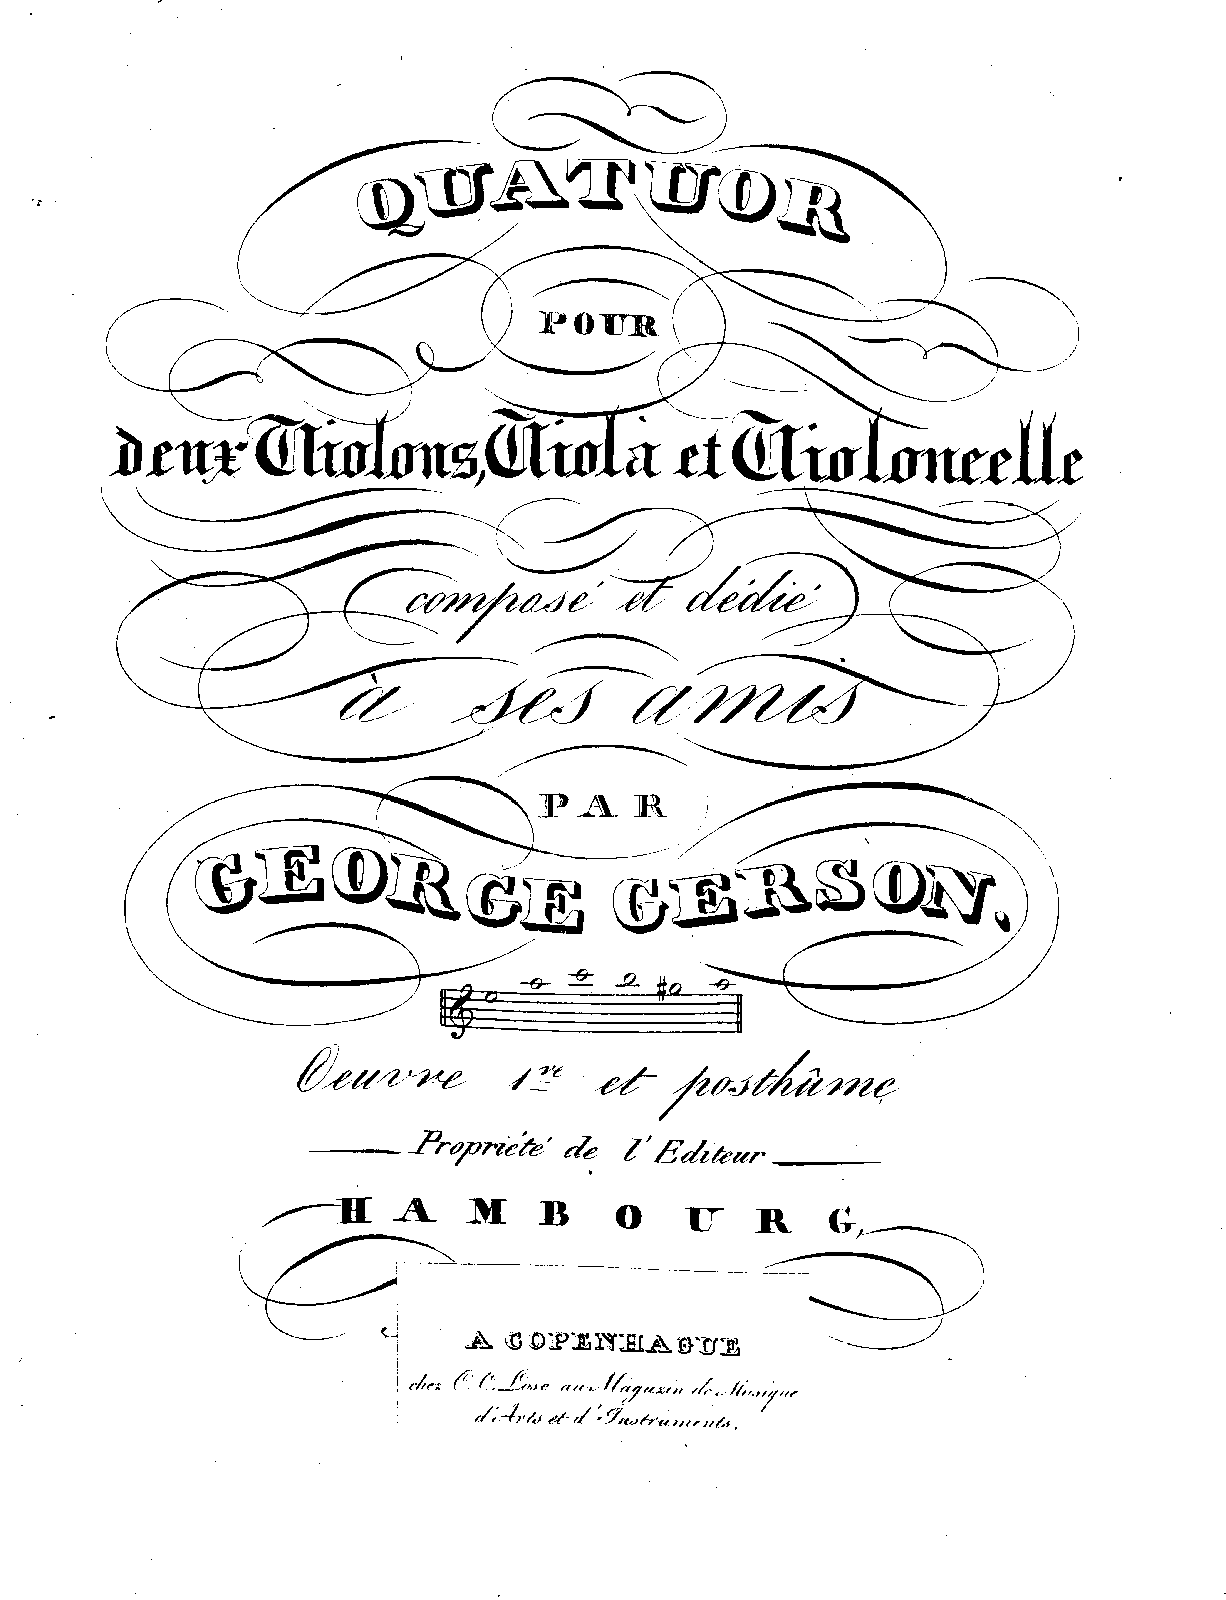 QUATUOR
POUR
deux Violons, Viola et Violoncelle
composé et dédié
à ses amis
PAR
GEORGE GERSON.
Oeuvre 1re et posthûme
Propriété de l'Editeur
HAMBOURG,
A COPENHAGUE
chez C. C. Lose au Magazin de Musique
d'Arts et d'Instruments.